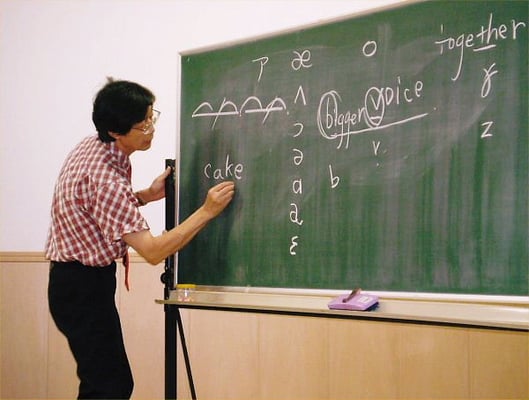 p æ o together
ʌ bigger voice
ɔ z
cake ə
ɑ b v
ɛ